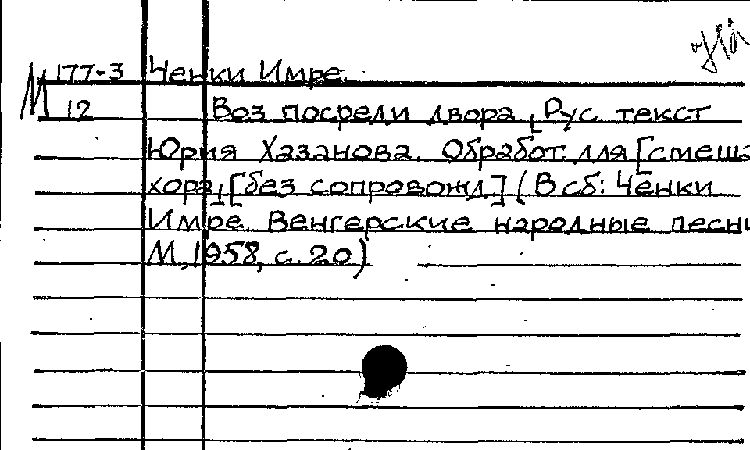 М 177-3 Ченки Имре.
12 Воз посреди двора. [Рус. текст
Юрия Хазанова. Обработ. для [смеша
хора,] [без сопровожд.] (В сб: Ченки
Имре. Венгерские народные песни
М., 1958, с. 20)